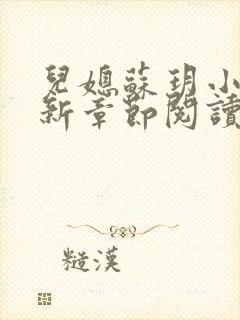 兒媳蘇玥小
新章節閱讀
糙漢